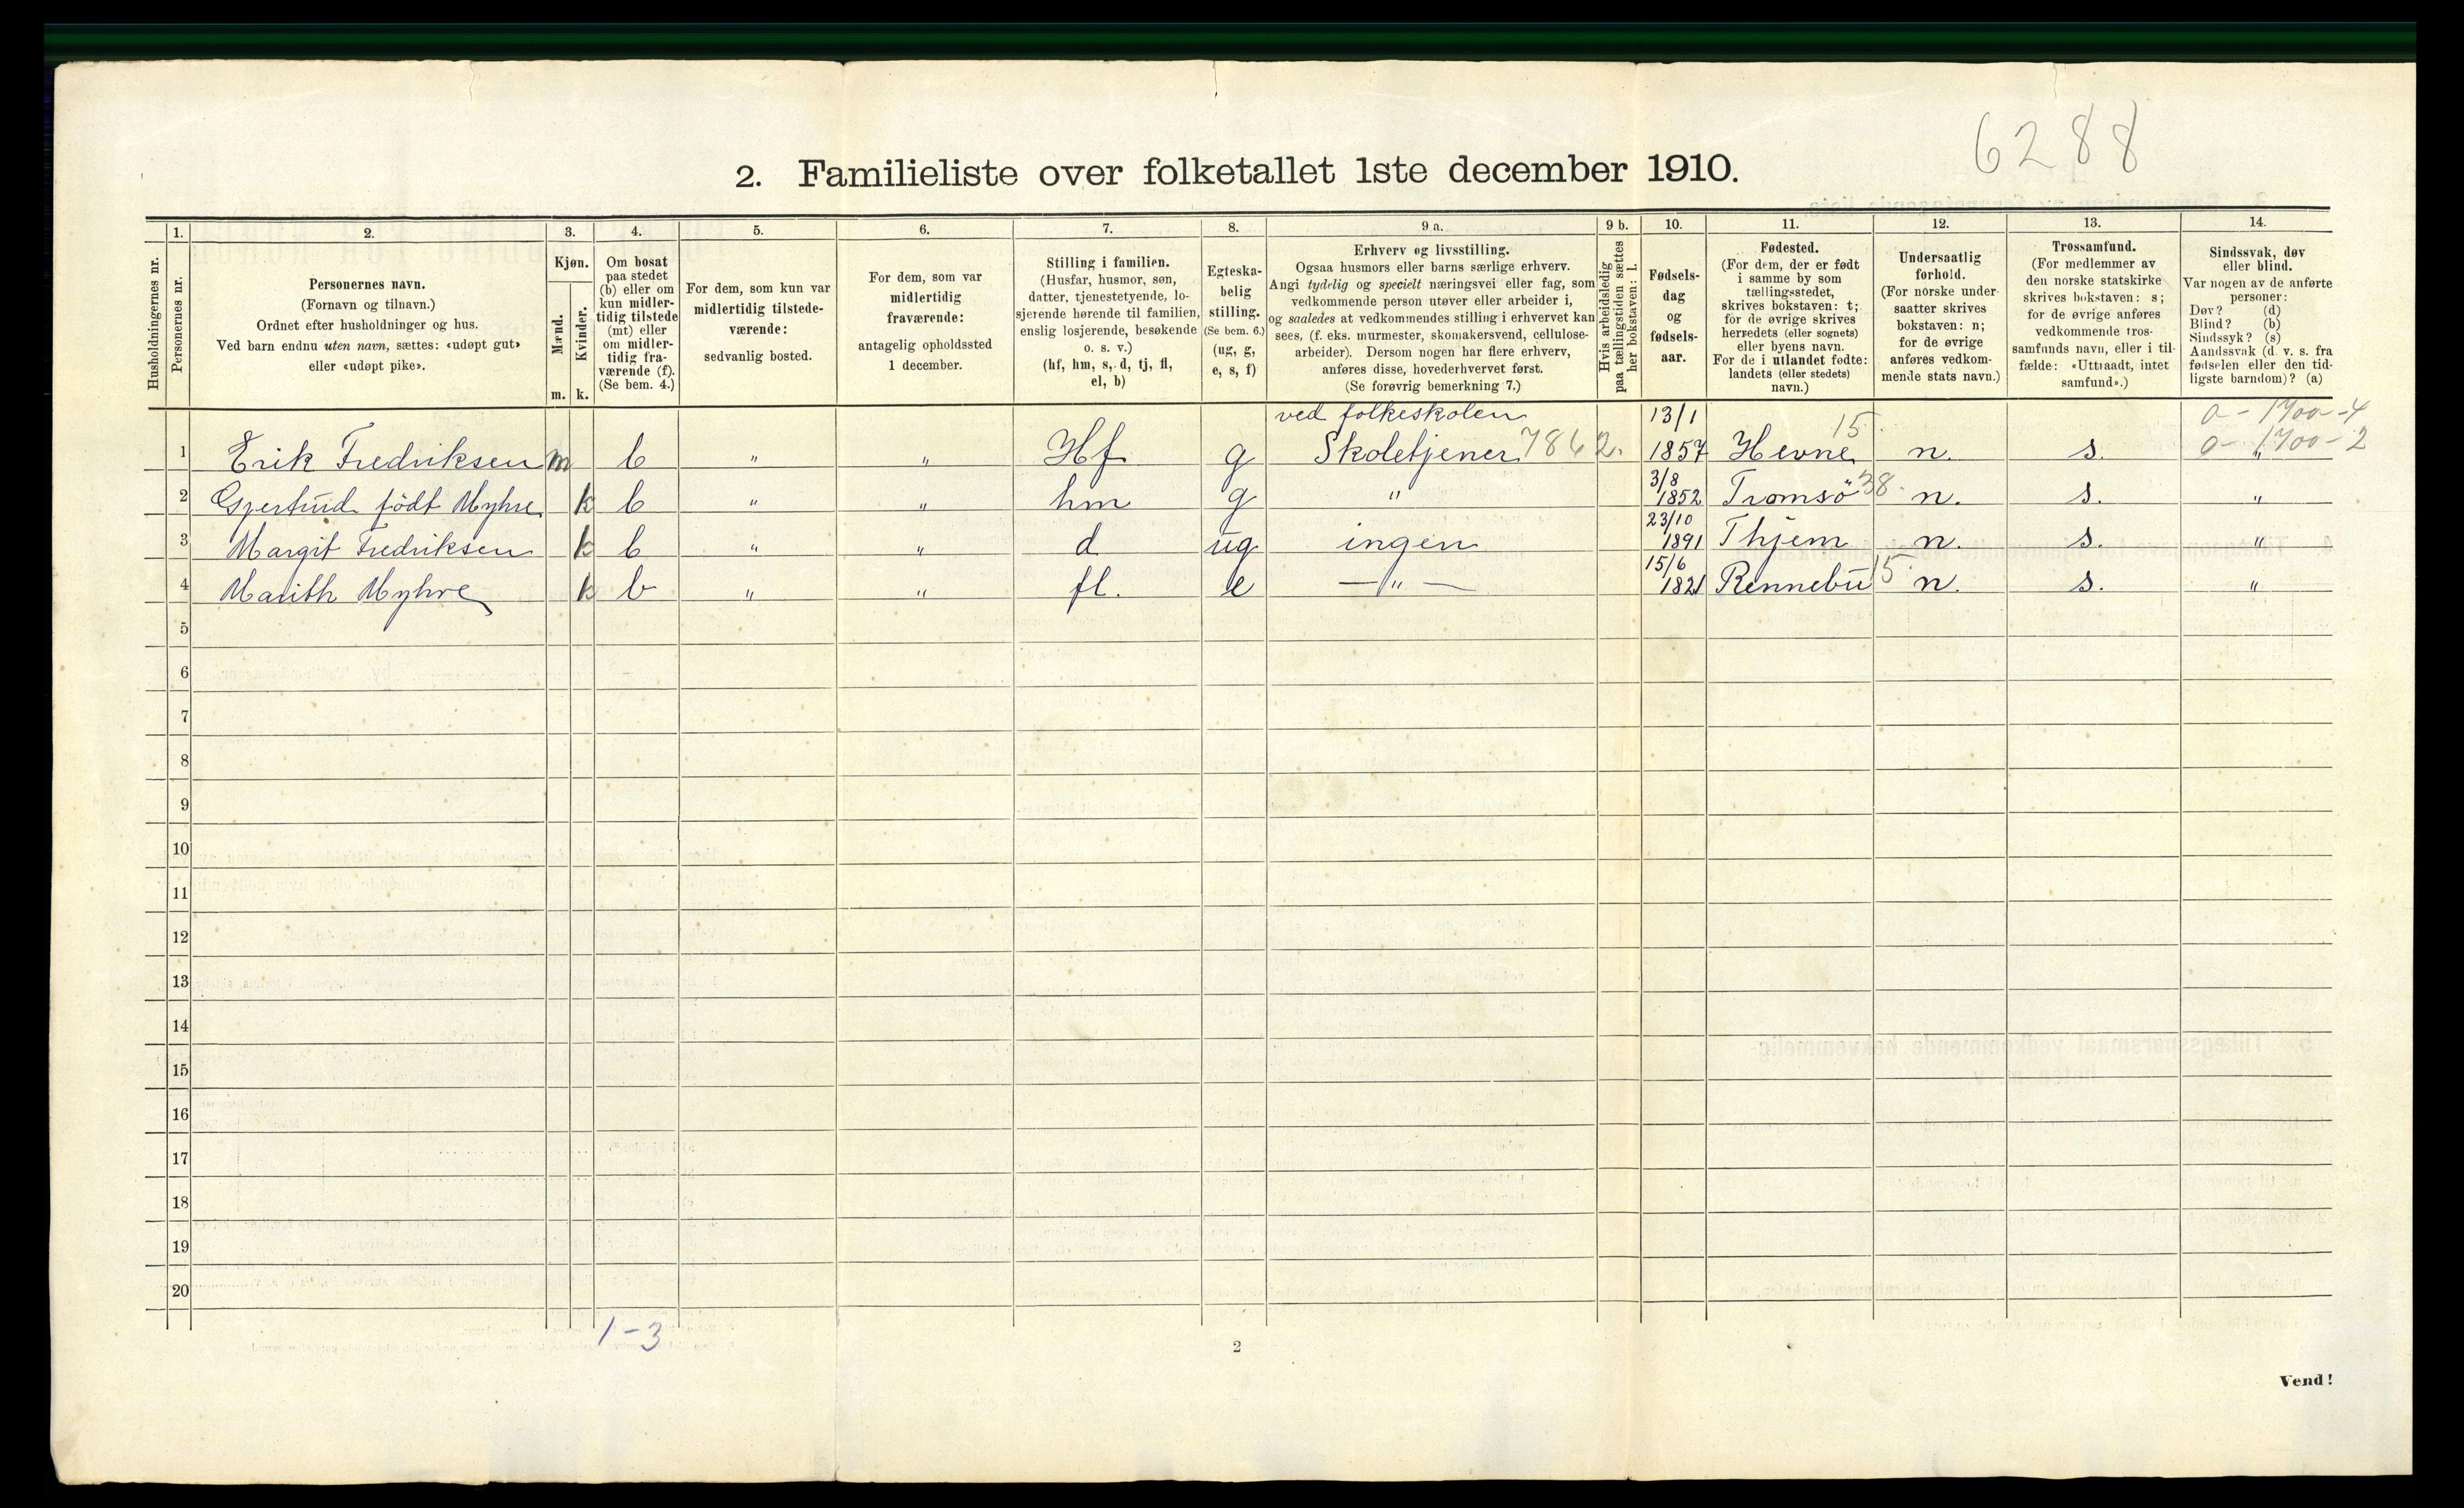 6288
2. Familieliste over folketallet 1ste december 1910.
Husholdningernes nr.
1. Personernes nr.
2. Personernes navn. (Fornavn og tilnavn.) Ordnet efter husholdninger og hus. Ved barn endnu uten navn, sættes: «udøpt gut» eller «udøpt pike».
3. Kjøn. Mænd. m. Kvinder. k.
4. Om bosat paa stedet (b) eller om kun midlertidig tilstede (mt) eller om midlertidig fraværende (f). (Se bem. 4.)
5. For dem, som kun var midlertidig tilstedeværende: sedvanlig bosted.
6. For dem, som var midlertidig fraværende: antagelig opholdssted 1 december.
7. Stilling i familien. (Husfar, husmor, søn, datter, tjenestetyende, losjerende hørende til familien, enslig losjerende, besøkende o. s. v.) (hf, hm, s, d, tj, fl, el, b)
8. Egteskabelig stilling. (Se bem. 6.) (ug, g, e, s, f)
9 a. Erhverv og livsstilling. Ogsaa husmors eller barns særlige erhverv. Angi tydelig og specielt næringsvei eller fag, som vedkommende person utøver eller arbeider i, og saaledes at vedkommendes stilling i erhvervet kan sees, (f. eks. murmester, skomakersvend, cellulosearbeider). Dersom nogen har flere erhverv, anføres disse, hovederhvervet først. (Se forøvrig bemerkning 7.)
9 b. Hvis arbeidsledig paa tællingstiden sættes her bokstaven: l.
10. Fødselsdag og fødselsaar.
11. Fødested. (For dem, der er født i samme by som tællingsstedet, skrives bokstaven: t; for de øvrige skrives herredets (eller sognets) eller byens navn. For de i utlandet fødte: landets (eller stedets) navn.)
12. Undersaatlig forhold. (For norske undersaatter skrives bokstaven: n; for de øvrige anføres vedkommende stats navn.)
13. Trossamfund. (For medlemmer av den norske statskirke skrives bokstaven: s; for de øvrige anføres vedkommende trossamfunds navn, eller i tilfælde: «Uttraadt, intet samfund».)
14. Sindssvak, døv eller blind. Var nogen av de anførte personer: Døv? (d) Blind? (b) Sindssyk? (s) Aandssvak (d. v. s. fra fødselen eller den tidligste barndom)? (a)
ved folkeskolen 13/1 15. 0 - 1700 - 4
1 Erik Fredriksen m b " " Hf g Skoletjener 7862. 1857 Hevne n. s. " 0 - 1700 - 2
2 Gjertrud født Myhre k b " " hm g " 3/8 1852 Tromsö 38. n. s. "
3 Margit Fredriksen k b " " d ug ingen 23/10 1891 Thjem n. s. "
4 Marith Myhre k b " " fl. e — " — 15/6 1821 Rennebu 15. n. s. "
5
6
7
8
9
10
11
12
13
14
15
16
17
18
19
20
1 - 3
2
Vend!